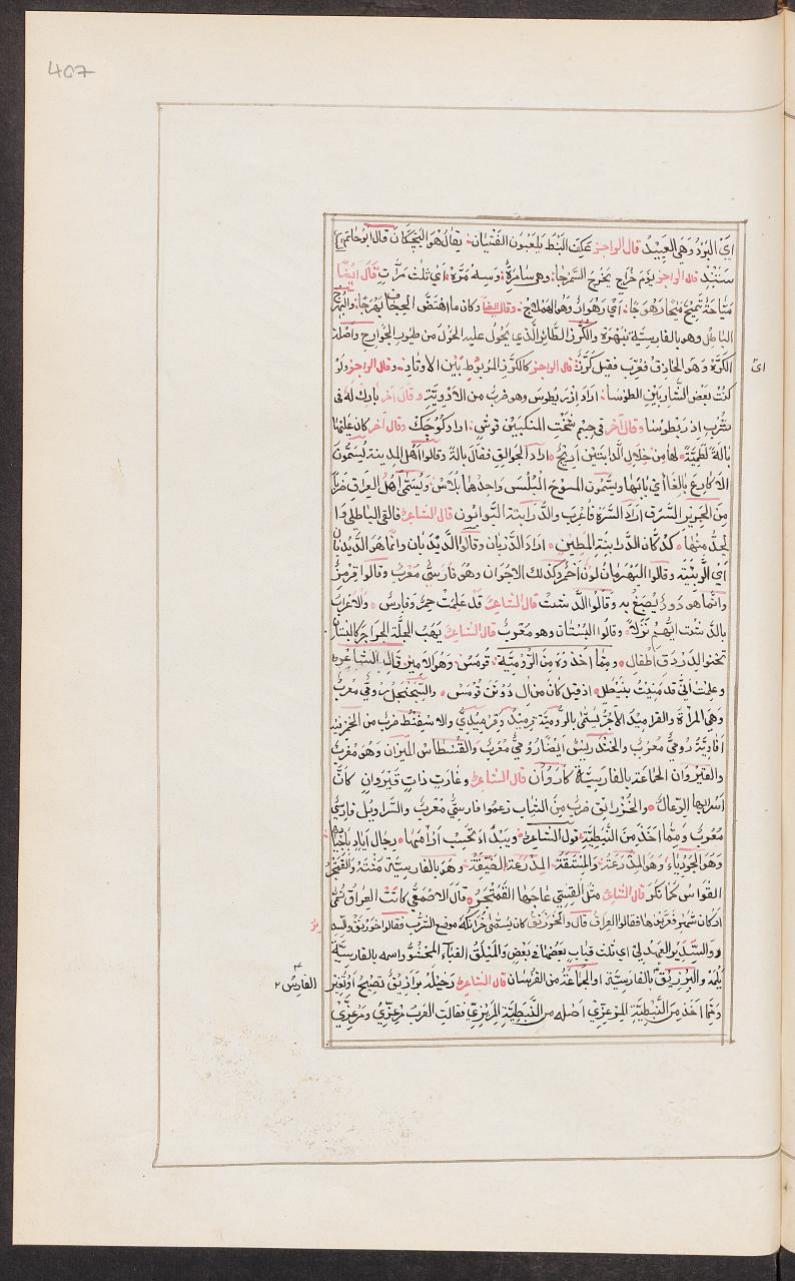 407
اي البرد وهي العبيد قال الراجز عكف النبط يلعبون الفنتيان يقال هو البنجكان قال ابو حاتم
قال الراجز يوم خراج يخرج السمرجا وهو سامره وسه مره اي ثلث مرات قال ايضا
مياحة تميح ميحا رهوجا اي رهوار وهو الهملاج وقال ايضا وكان ما اهتض الحجاف بهرجا والبهرج
الباطل وهو بالفارسية نبهره والكرز الطائر الذي يحول عليه الحول من طيور الجوارح واصله
الكره وهو الحاذق فعرب فقيل كرز قال الراجز كالكرز المربوط بين الاوتاد وقال الراجز ولو
كنت بعض الشاربين الطوسا اراد اذريطوس وهو ضرب من الادوية وقال آخر بارك له في
شرب اذريطوسا وقال آخر في جسم شخت المنكبين قوش اراد كوچك وقال آخر كان عليها
بالة لطمية لها من خلال الدايتين اريج اراد الجوالق فقال بالة وقالوا اهل المدينة يسمون
الاكارع بالغا اي بائها ويسمون المسوح البلس واحدها بلاس ويسمي اهل العراق ضربا
من الحرير السرق اراد السره فاعرب والدرابنة البوابون قال الشاعر فالقي باطلي وا
لجد منها كدكان الدرابنة المطين اراد الدربان وقالوا الديدبان وانما هو الديدبان
اي الربيئة وقالوا البهرمان لون احمر وكذلك الارجوان وهو فارسي معرب وقالوا قرمز
وانما هو دود يصبغ به وقالوا الدشت قال الشاعر قد علمت حمير وفارس والاعراب
بالدشت ايهم نزلا وقالوا البستان وهو معرب قال الشاعر يهب الجلة الجراجر كالبستان
تحنو لدردق اطفال ومما اخذوه من الرومية قومس وهو الامير قال الشاعر
وعلمت اني قد منيت بنيطل اذ قيل كان من ال دوفن قومس والسجنجل رومي معرب
وهي المراة والقراميد الاجر يسمي بالرومية ترميد وقرميدي والاسفنط ضرب من الخمر فيه
افاوية رومي معرب والخندريس ايضا رومي معرب والقسطاس الميزان وهو معرب
والقيروان الجماعة بالفارسية كاروان قال الشاعر وغارت ذات قيروان كان
اسرابها الرعال والخزرانق ضرب من الثياب زعموا فارسي معرب والسراويل فارسي
معرب ومما اخذ من النبطية قول الشاعر وبيداء تحسب ارامها رجال اياد باجيادها
وهو الجودياء وهو المدرعة والمستقة المدرعة الضيقة وهو بالفارسية مشته والقمنجر
القواس كمانكر قال الشاعر مثل القسي عاجها القمنجر وقال الاصمعي كانت العراق تسمي
والسدير العهدلي اي ثلث قباب بعضها في بعض واليلمق القباء المحشو واسمه بالفارسية
يلمه والبرزيق بالفارسية او الجماعة من الفرسان قال الشاعر وخيله برازيق تصبح او تغير
ومما اخذ من النبطية المرعزي اصله من النبطية المريزي فقالت العرب مرعزي ومرعزي
اي
الفارس